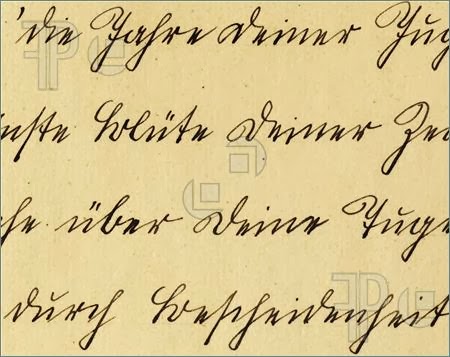 die Jahre Deiner Jug
nste Blüte Deiner Ze
he über Deine Tuge
durch Bescheidenheit